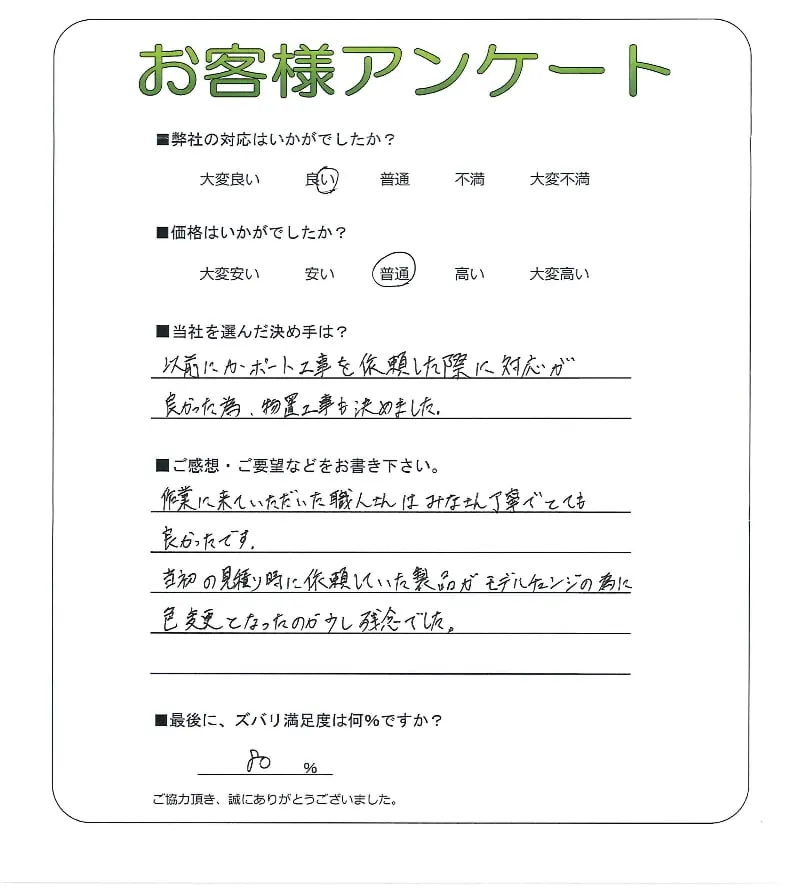 お客様アンケート
■弊社の対応はいかがでしたか？
大変良い 良い 普通 不満 大変不満
■価格はいかがでしたか？
大変安い 安い 普通 高い 大変高い
■当社を選んだ決め手は？
以前にカーポート工事を依頼した際に対応が
良かった為、物置工事も決めました。
■ご感想・ご要望などをお書き下さい。
作業に来ていただいた職人さんはみなさん丁寧でとても
良かったです。
当初の見積り時に依頼していた製品がモデルチェンジの為に
色変更となったのが少し残念でした。
■最後に、ズバリ満足度は何％ですか？
80 ％
ご協力頂き、誠にありがとうございました。